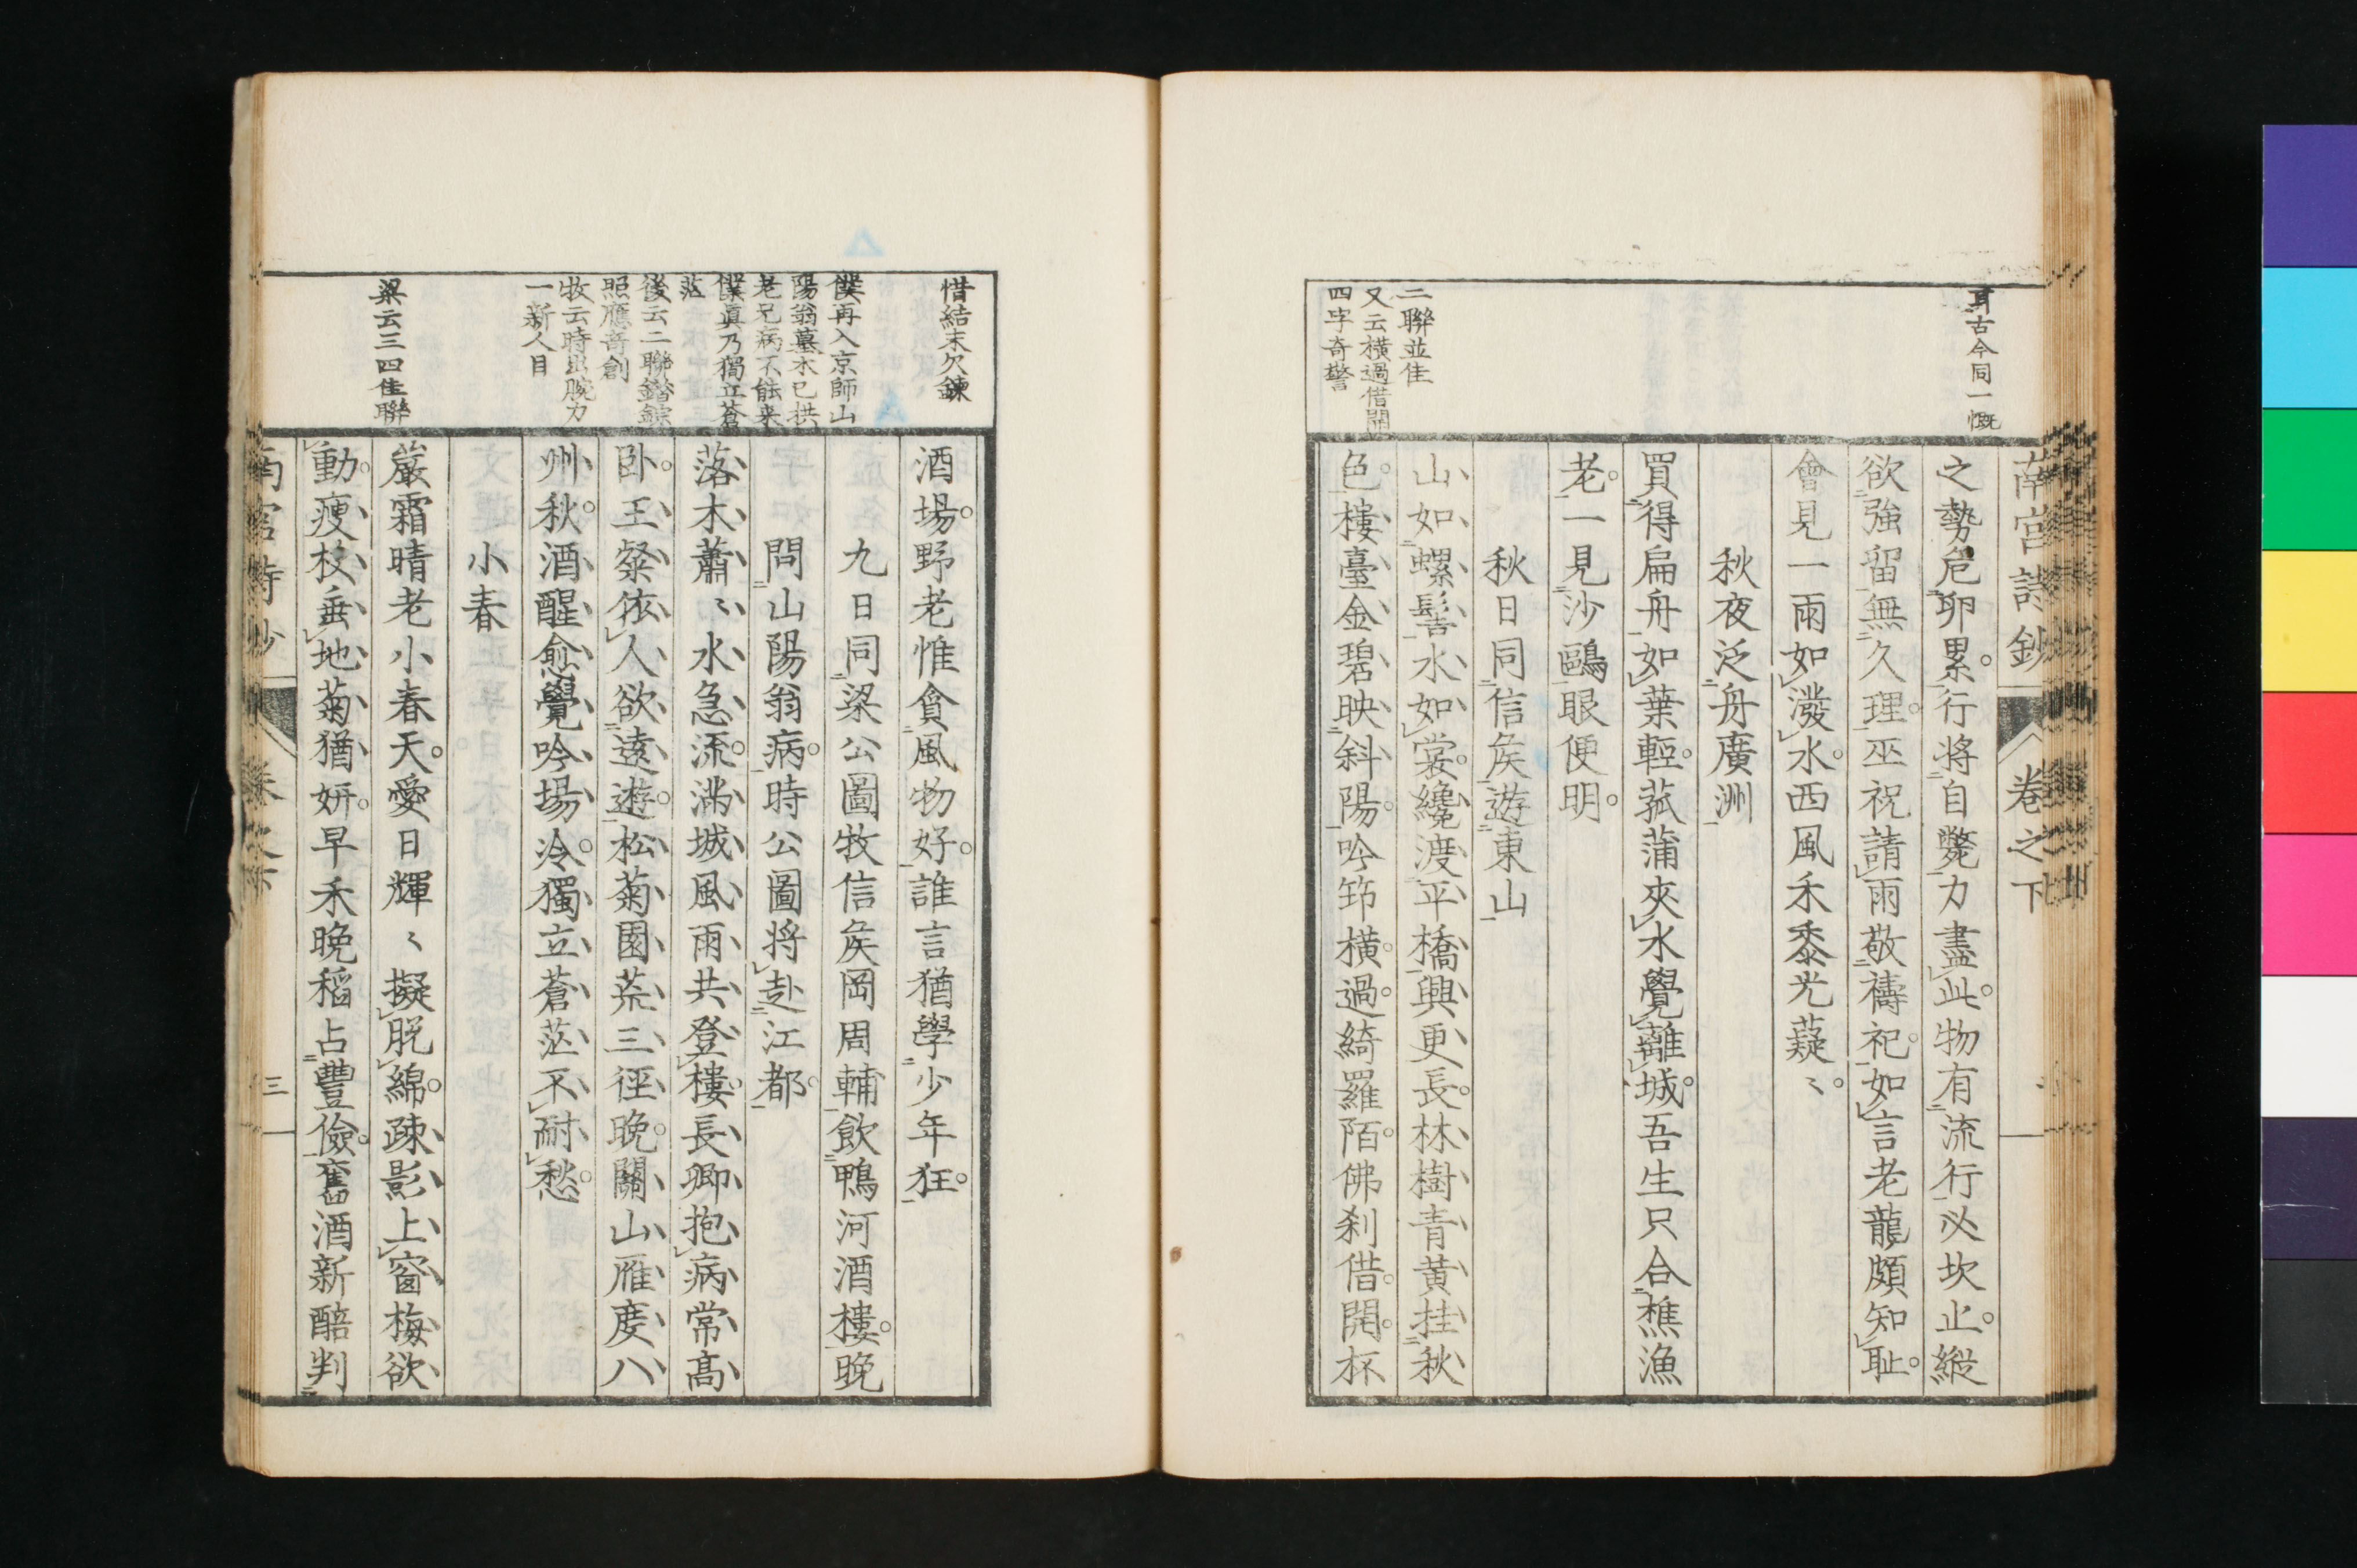 身古今同一慨
二聯並佳
又云横過借開
四字奇警
南宮詩鈔 卷之下
之勢危卵累行将自斃力盡此物有流行必坎止縦
欲強留無久理巫祝請雨敬禱祀如言老龍頗知耻
會見一雨如潑水西風禾黍光薿〻
秋夜泛舟廣洲
買得扁舟如葉輕菰蒲夾水覺離城吾生只合樵漁
老一見沙鷗眼便明
秋日同信矦遊東山
山如螺髻水如裳纔渡平橋興更長林樹青黄挂秋
色樓臺金碧映斜陽吟筇横過綺羅陌佛刹借開杯
惜結末欠鍊
僕再入京師山
陽翁墓木已拱
老兄病不能来
僕眞乃獨立蒼
茫
後云二聯錯綜
照應奇創
牧云時出腕力
一新人目
梁云三四佳聯
酒場野老惟貪風物好誰言猶學少年狂
九日同梁公圖牧信矦岡周輔飲鴨河酒樓晚
問山陽翁病時公圖将赴江都
落木蕭〻水急流満城風雨共登樓長卿抱病常高
卧王粲依人欲遠遊松菊園荒三徑晚關山雁度八
州秋酒醒愈覺吟場冷獨立蒼茫不耐愁
小春
嚴霜晴老小春天愛日輝〻擬脱綿疎影上窗梅欲
動瘦枝垂地菊猶妍早禾晚稻占豐儉舊酒新醅判
三